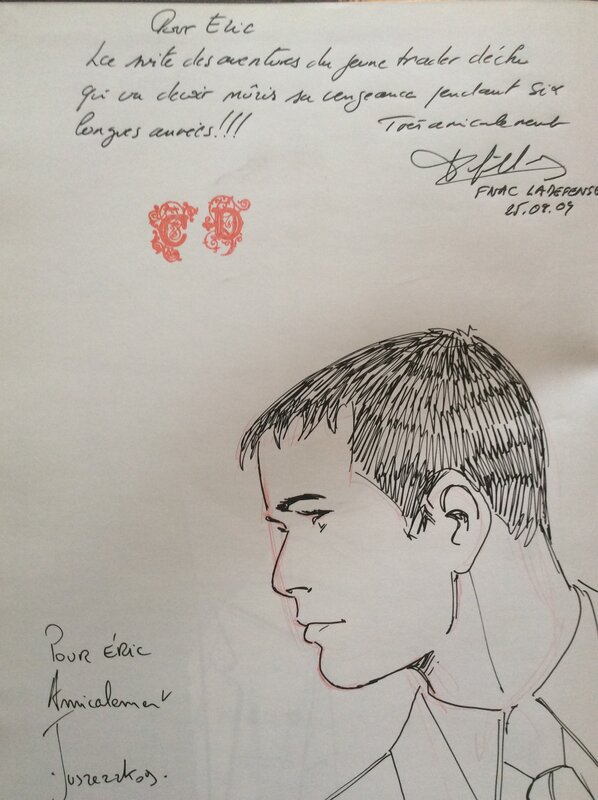 Pour Eric
La suite des aventures du jeune trader déchu
qui va devoir mûrir sa vengeance pendant six
longues années!!!
Très amicalement
FNAC LA DEFENSE
25.09.09
C D
Pour Éric
Amicalement
Juszezak 09.